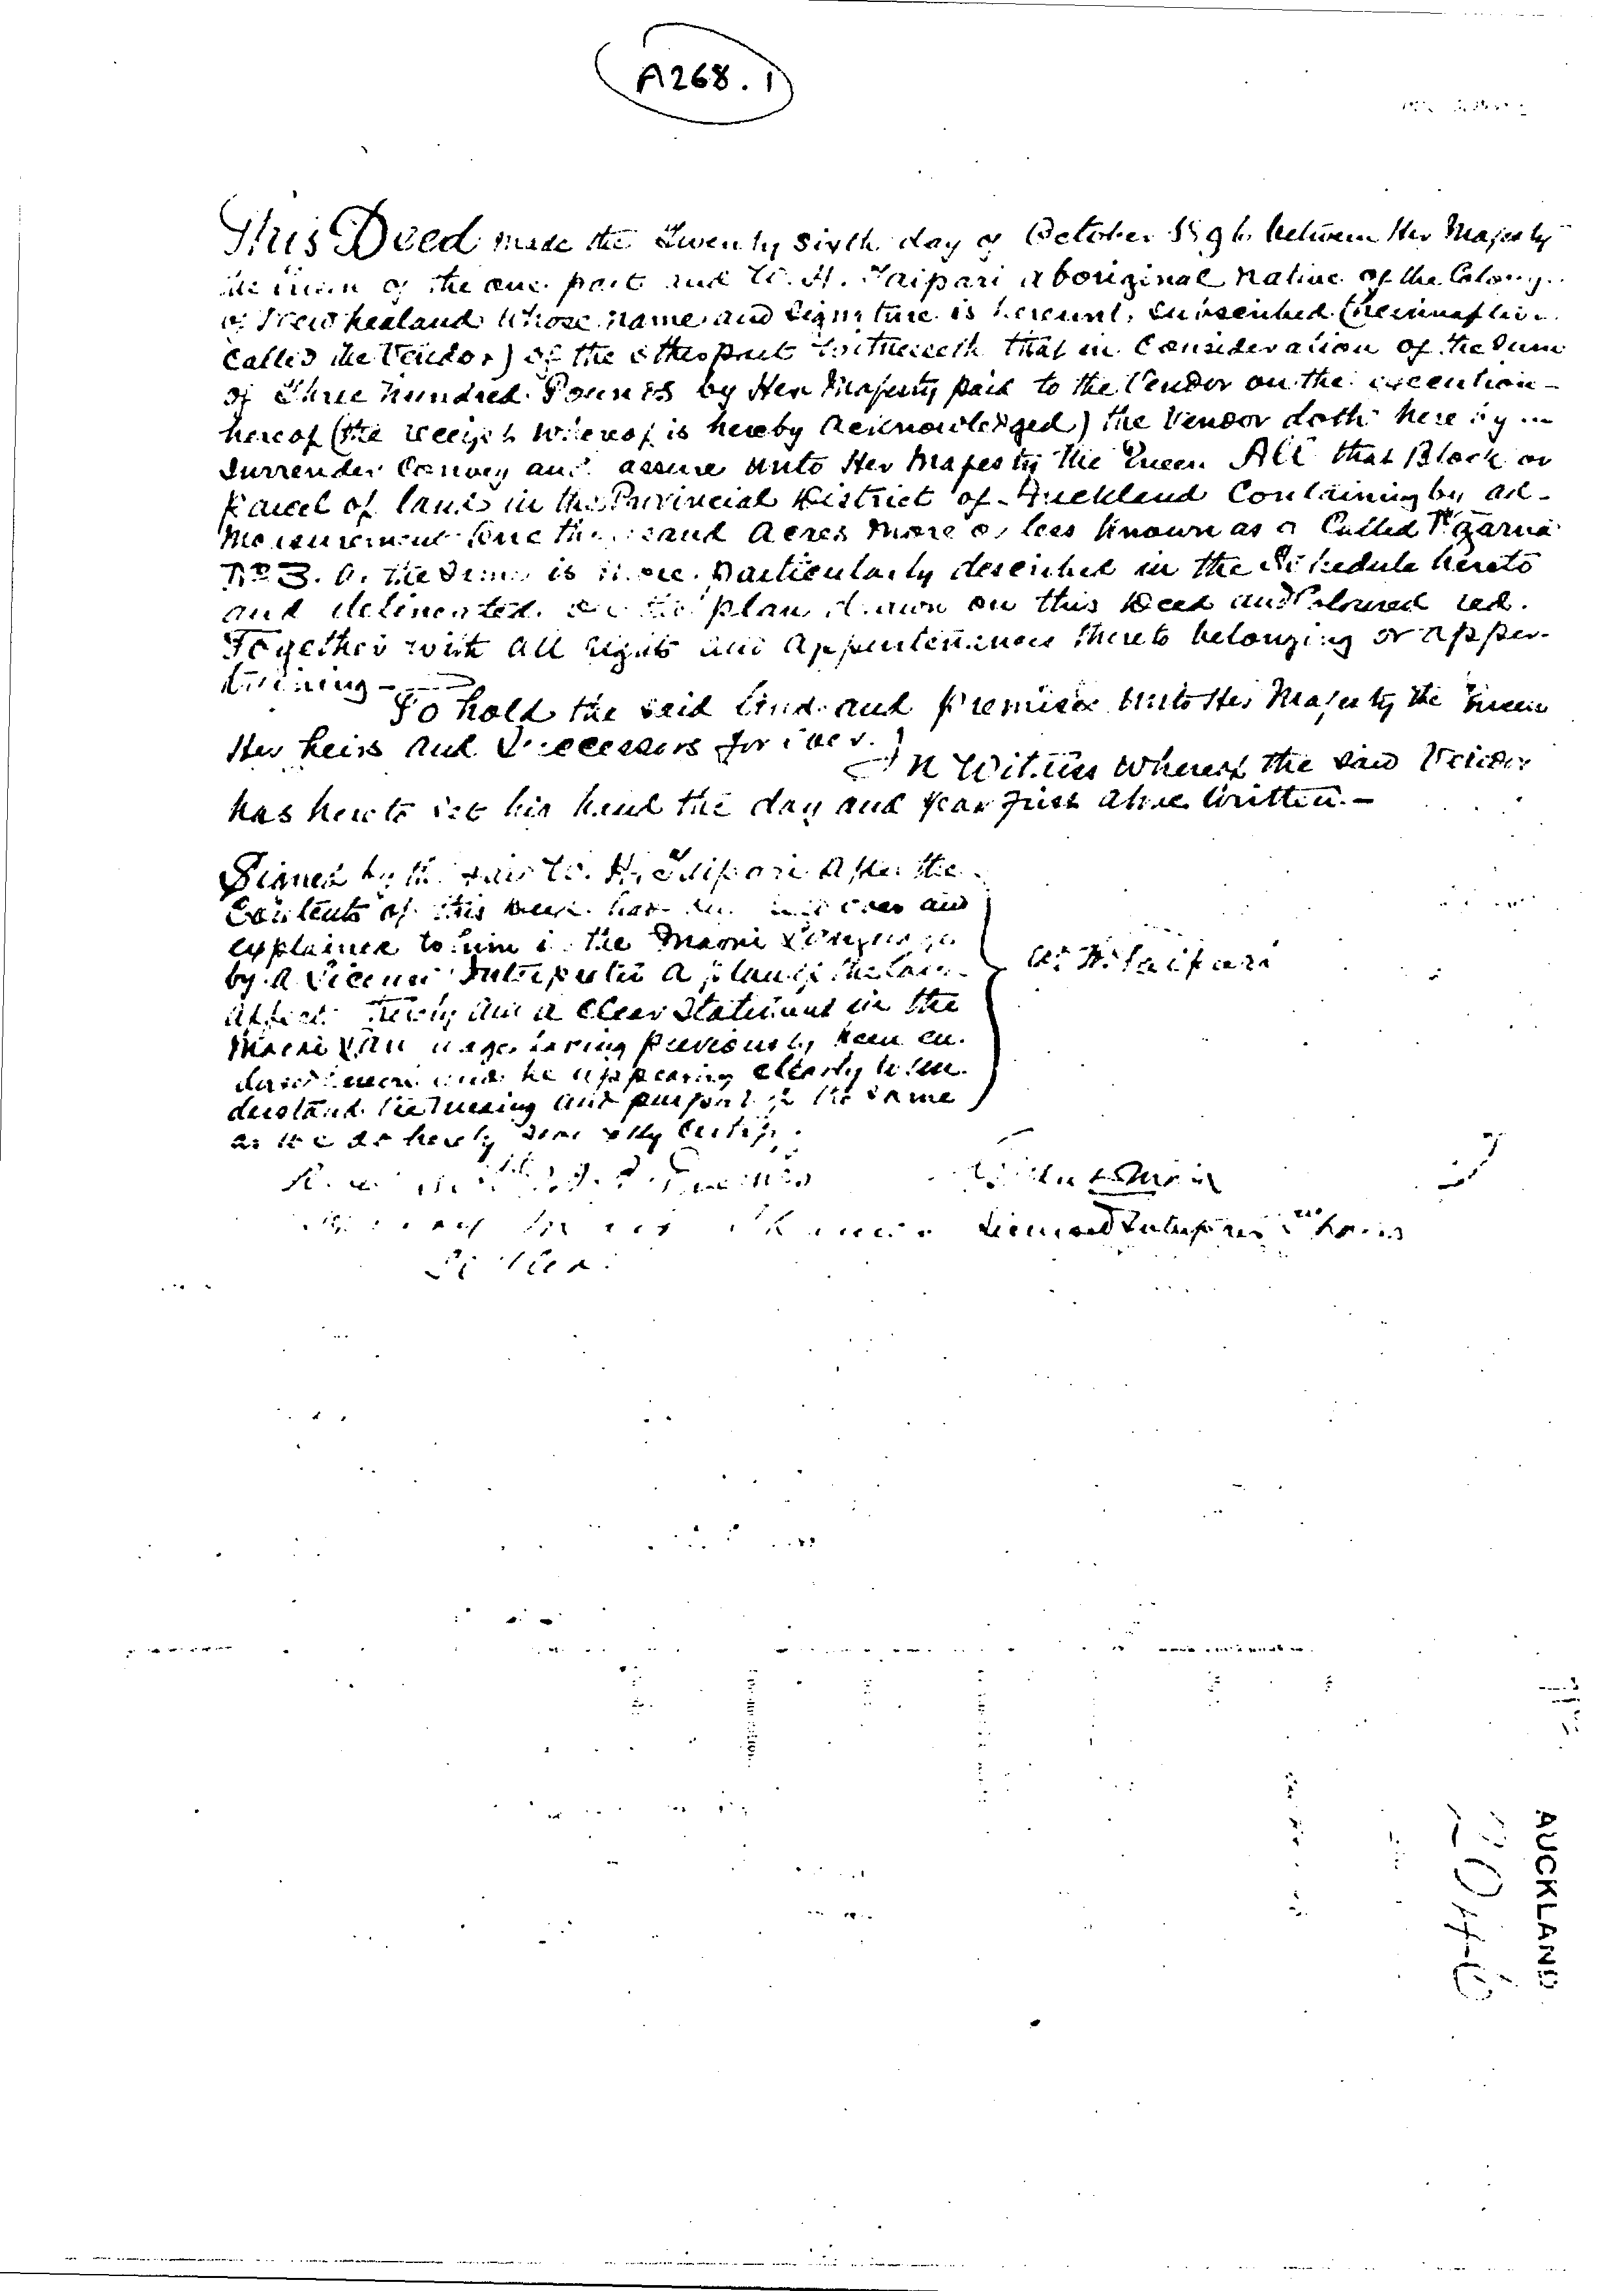 A268.1
This Deed made the Twenty sixth day of October 1896 between Her Majesty
the Queen of the one part and W. H. Taipari aboriginal Native of the Colony
of New Zealand whose name and signature is hereunto subscribed (hereinafter
called the Vendor) of the other part Witnesseth that in Consideration of the sum
of Three hundred Pounds by Her Majesty paid to the Vendor on the execution
hereof (the receipt whereof is hereby acknowledged) the Vendor doth hereby
Surrender Convey and assure unto Her Majesty the Queen All that Block or
Parcel of land in the Provincial District of Auckland Containing by ad-
measurement One thousand acres more or less known as or Called
No 3. As the same is more particularly described in the Schedule hereto
and delineated on the plan drawn on this Deed and Coloured red.
Together with all rights and appurtenances thereto belonging or apper-
taining
To hold the said land and premises unto Her Majesty the Queen
Her heirs and Successors for ever.
In Witness whereof the said Vendor
has hereto set his hand the day and year first above written.—
Signed by the said W. H. Taipari after the
Contents of this Deed had been read over and
explained to him in the Maori Language
by a licensed Interpreter a plan of the land
thereby and a clear Statement in the
Maori Language having previously been en-
dorsed thereon and he appearing clearly to un-
derstand the meaning and purport of the same
as we do hereby severally certify.
W. H. Taipari
Licensed Interpreter Thames
AUCKLAND
2046